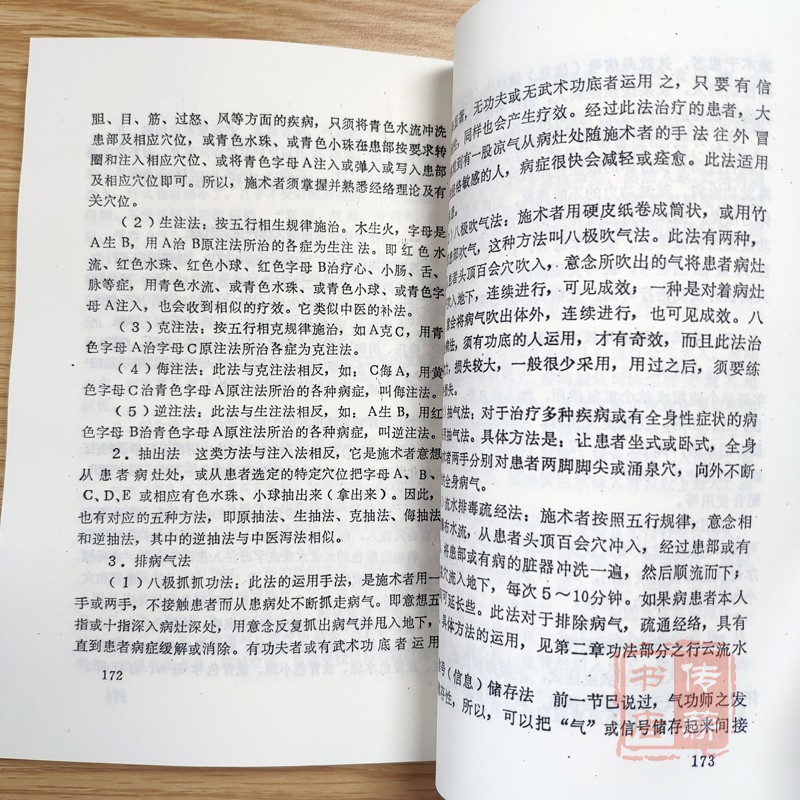 胆、目、筋、过怒、风等方面的疾病，只须将青色水流冲洗
患部及相应穴位，或青色水珠、或青色小珠在患部按要求转
圈和注入相应穴位、或将青色字母A注入或弹入或写入患部
及相应穴位即可。所以，施术者须掌握并熟悉经络理论及有
关穴位。
（2）生注法：按五行相生规律施治。木生火，字母是
A生B，用A治B原注法所治的各症为生注法。即红色水
流、红色水珠、红色小球、红色字母B治疗心、小肠、舌、
脉等症，用青色水流、或青色水珠、或青色小球、或青色字
母A注入，也会收到相似的疗效。它类似中医的补法。
（3）克注法：按五行相克规律施治，如A克C，用青
色字母A治字母C原注法所治各症为克注法。
（4）侮注法：此法与克注法相反，如：C侮A，用黄
色字母C治青色字母A原注法所治的各种病症，叫侮注法。
（5）逆注法：此法与生注法相反，如：A生B，用红
色字母B治青色字母A原注法所治的各种病症，叫逆注法。
2．抽出法　这类方法与注入法相反，它是施术者意想
从患者病灶处，或从患者选定的特定穴位把字母A、B、
C、D、E或相应有色水珠、小球抽出来（拿出来）。因此，
也有对应的五种方法，即原抽法、生抽法、克抽法、侮抽法
和逆抽法，其中的逆抽法与中医泻法相似。
3．排病气法
（1）八极抓抓功法：此法的运用手法，是施术者用一
手或两手，不接触患者而从患病处不断抓走病气。即意想五
指或十指深入病灶深处，用意念反复抓出病气并甩入地下，
直到患者病症缓解或消除。有功夫者或有武术功底者运用
172
显著，无功夫或无武术功底者运用之，只要有信
，同样也会产生疗效。经过此法治疗的患者，大
觉到有一股凉气从病灶处随施术者的手法往外冒
络敏感的人，病症很快会减轻或痊愈。此法适用
八极吹气法：施术者用硬皮纸卷成筒状，或用竹
部吹气，这种方法叫八极吹气法。此法有两种，
患者头顶百会穴吹入，意念所吹出的气将患者病灶
吹入地下，连续进行，可见成效；一种是对着病灶
会将病气吹出体外，连续进行，也可见成效。八
法，须有功底的人运用，才有奇效，而且此法治
，损失较大，一般很少采用，用过之后，须要练
失。
抽气法：对于治疗多种疾病或有全身性症状的病
用抽气法。具体方法是：让患者坐式或卧式，全身
者两手分别对患者两脚脚尖或涌泉穴，向外不断
全身病气。
流水排毒疏经法：施术者按照五行规律，意念相
色水流，从患者头顶百会穴冲入，经过患部或有
将患部或有病的脏器冲洗一遍，然后顺流而下；
穴流入地下，每次5～10分钟。如果病患者本人
可延长些。此法对于排除病气，疏通经络，具有
具体方法的运用，见第二章功法部分之行云流水
号（信息）储存法　前一节已说过，气功师之发
存性，所以，可以把“气”或信号储存起来间接
173
传藏
书店